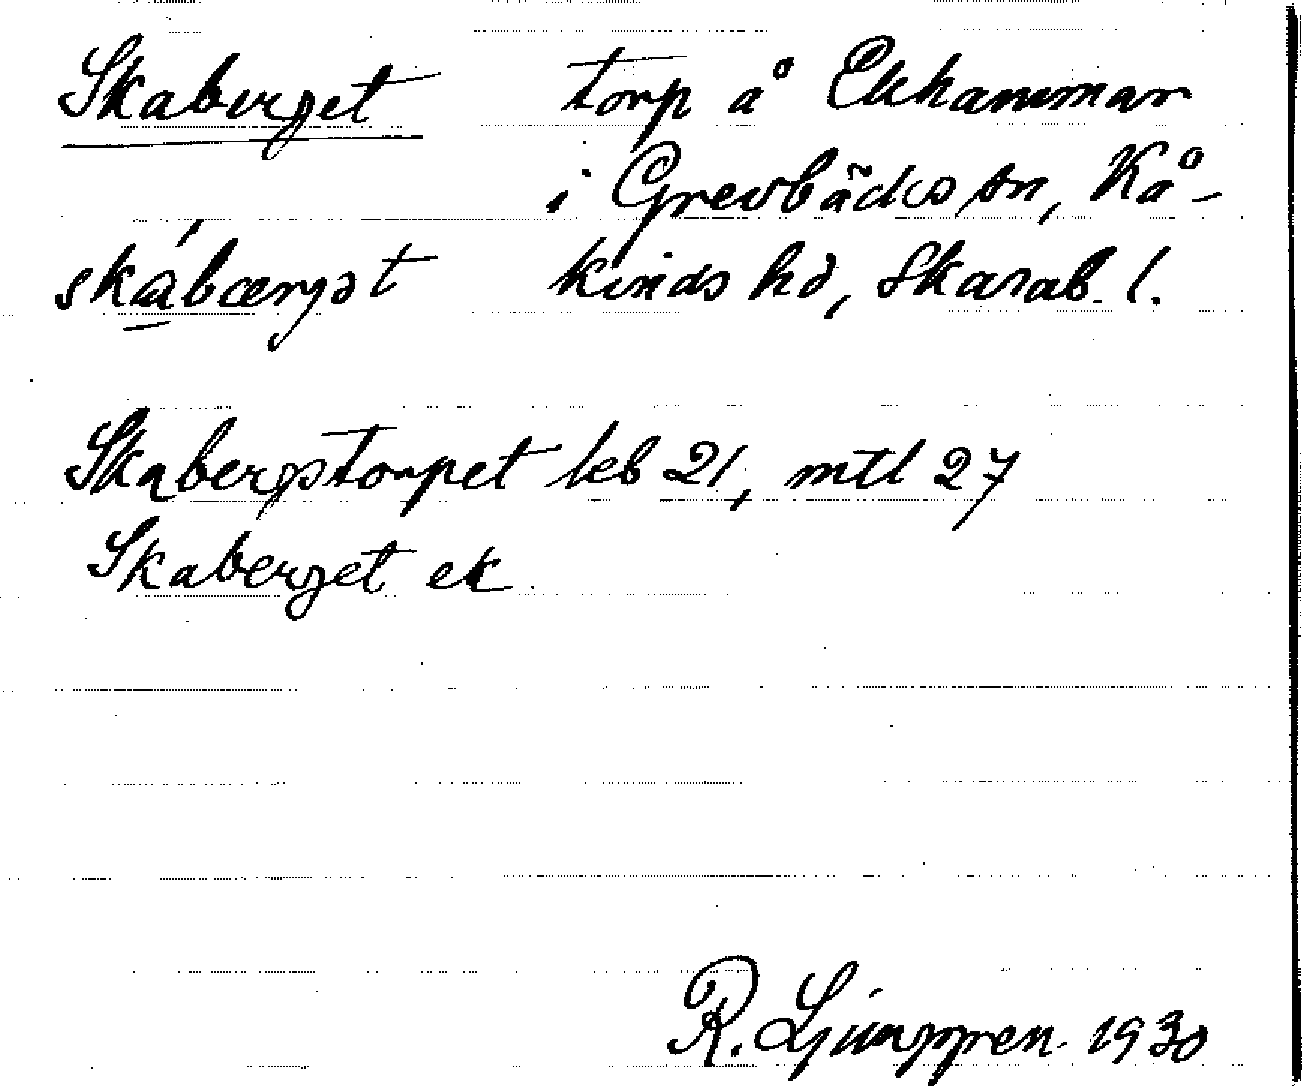 Skaberget torp å Ekhammar
i Grevbäcks sn, Kå-
skábærgət kinds hd, Skarab. l.
Skabergstorpet leb 21, mtl 27
Skaberget ek
R. Ljunggren 1930